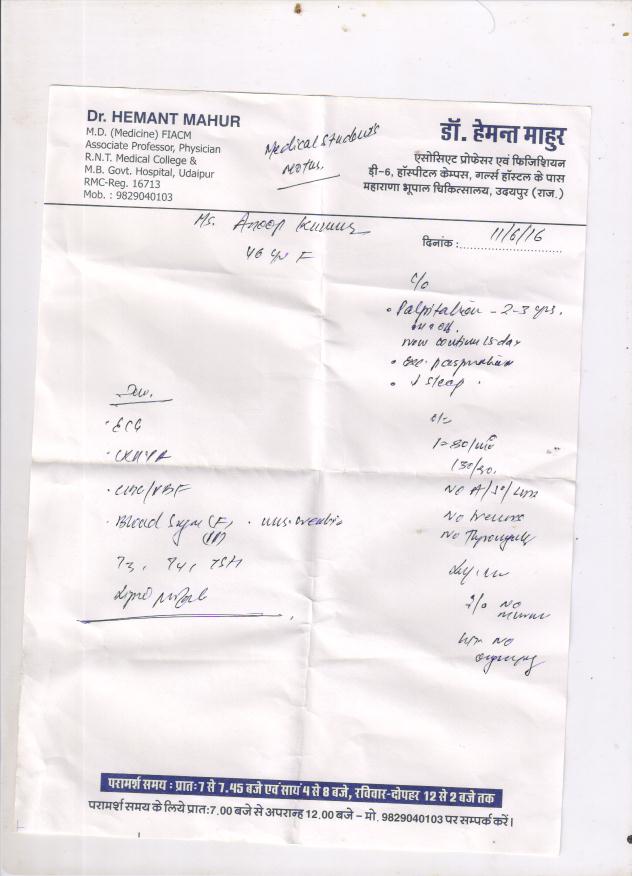 Dr. HEMANT MAHUR
M.D. (Medicine) FIACM
Associate Professor, Physician
R.N.T. Medical College &
M.B. Govt. Hospital, Udaipur
RMC-Reg. 16713
Mob. : 9829040103
Medical Student's
डॉ. हेमन्त माहुर
एसोसिएट प्रोफेसर एवं फिजिशियन
डी-6, हॉस्पीटल केम्पस, गर्ल्स हॉस्टल के पास
महाराणा भूपाल चिकित्सालय, उदयपुर (राज.)
Ms. Anoop Kumar
46 yr F
दिनांक : 11/6/16
c/o
• Palpitation - 2-3 yrs.
now continue 15 day
• Exc. perspiration
• ↓ sleep.
Inv.
• ECG
• CBC/PBF
• Blood Sugar (F)
T3, T4, TSH
Lipid profile
P=80/min
130/90.
No Tremors
No
murmur
No
परामर्श समय : प्रातः 7 से 7.45 बजे एवं सायं 4 से 8 बजे, रविवार-दोपहर 12 से 2 बजे तक
परामर्श समय के लिये प्रातः 7.00 बजे से अपरान्ह 12.00 बजे - मो. 9829040103 पर सम्पर्क करें।